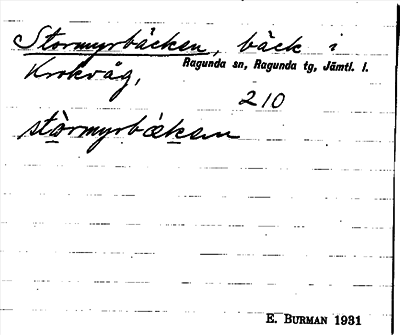 Stormyrbäcken, bäck i
Ragunda sn, Ragunda tg, Jämtl. l.
Krokvåg,
210
stòrmyrbæksen
E. BURMAN 1931